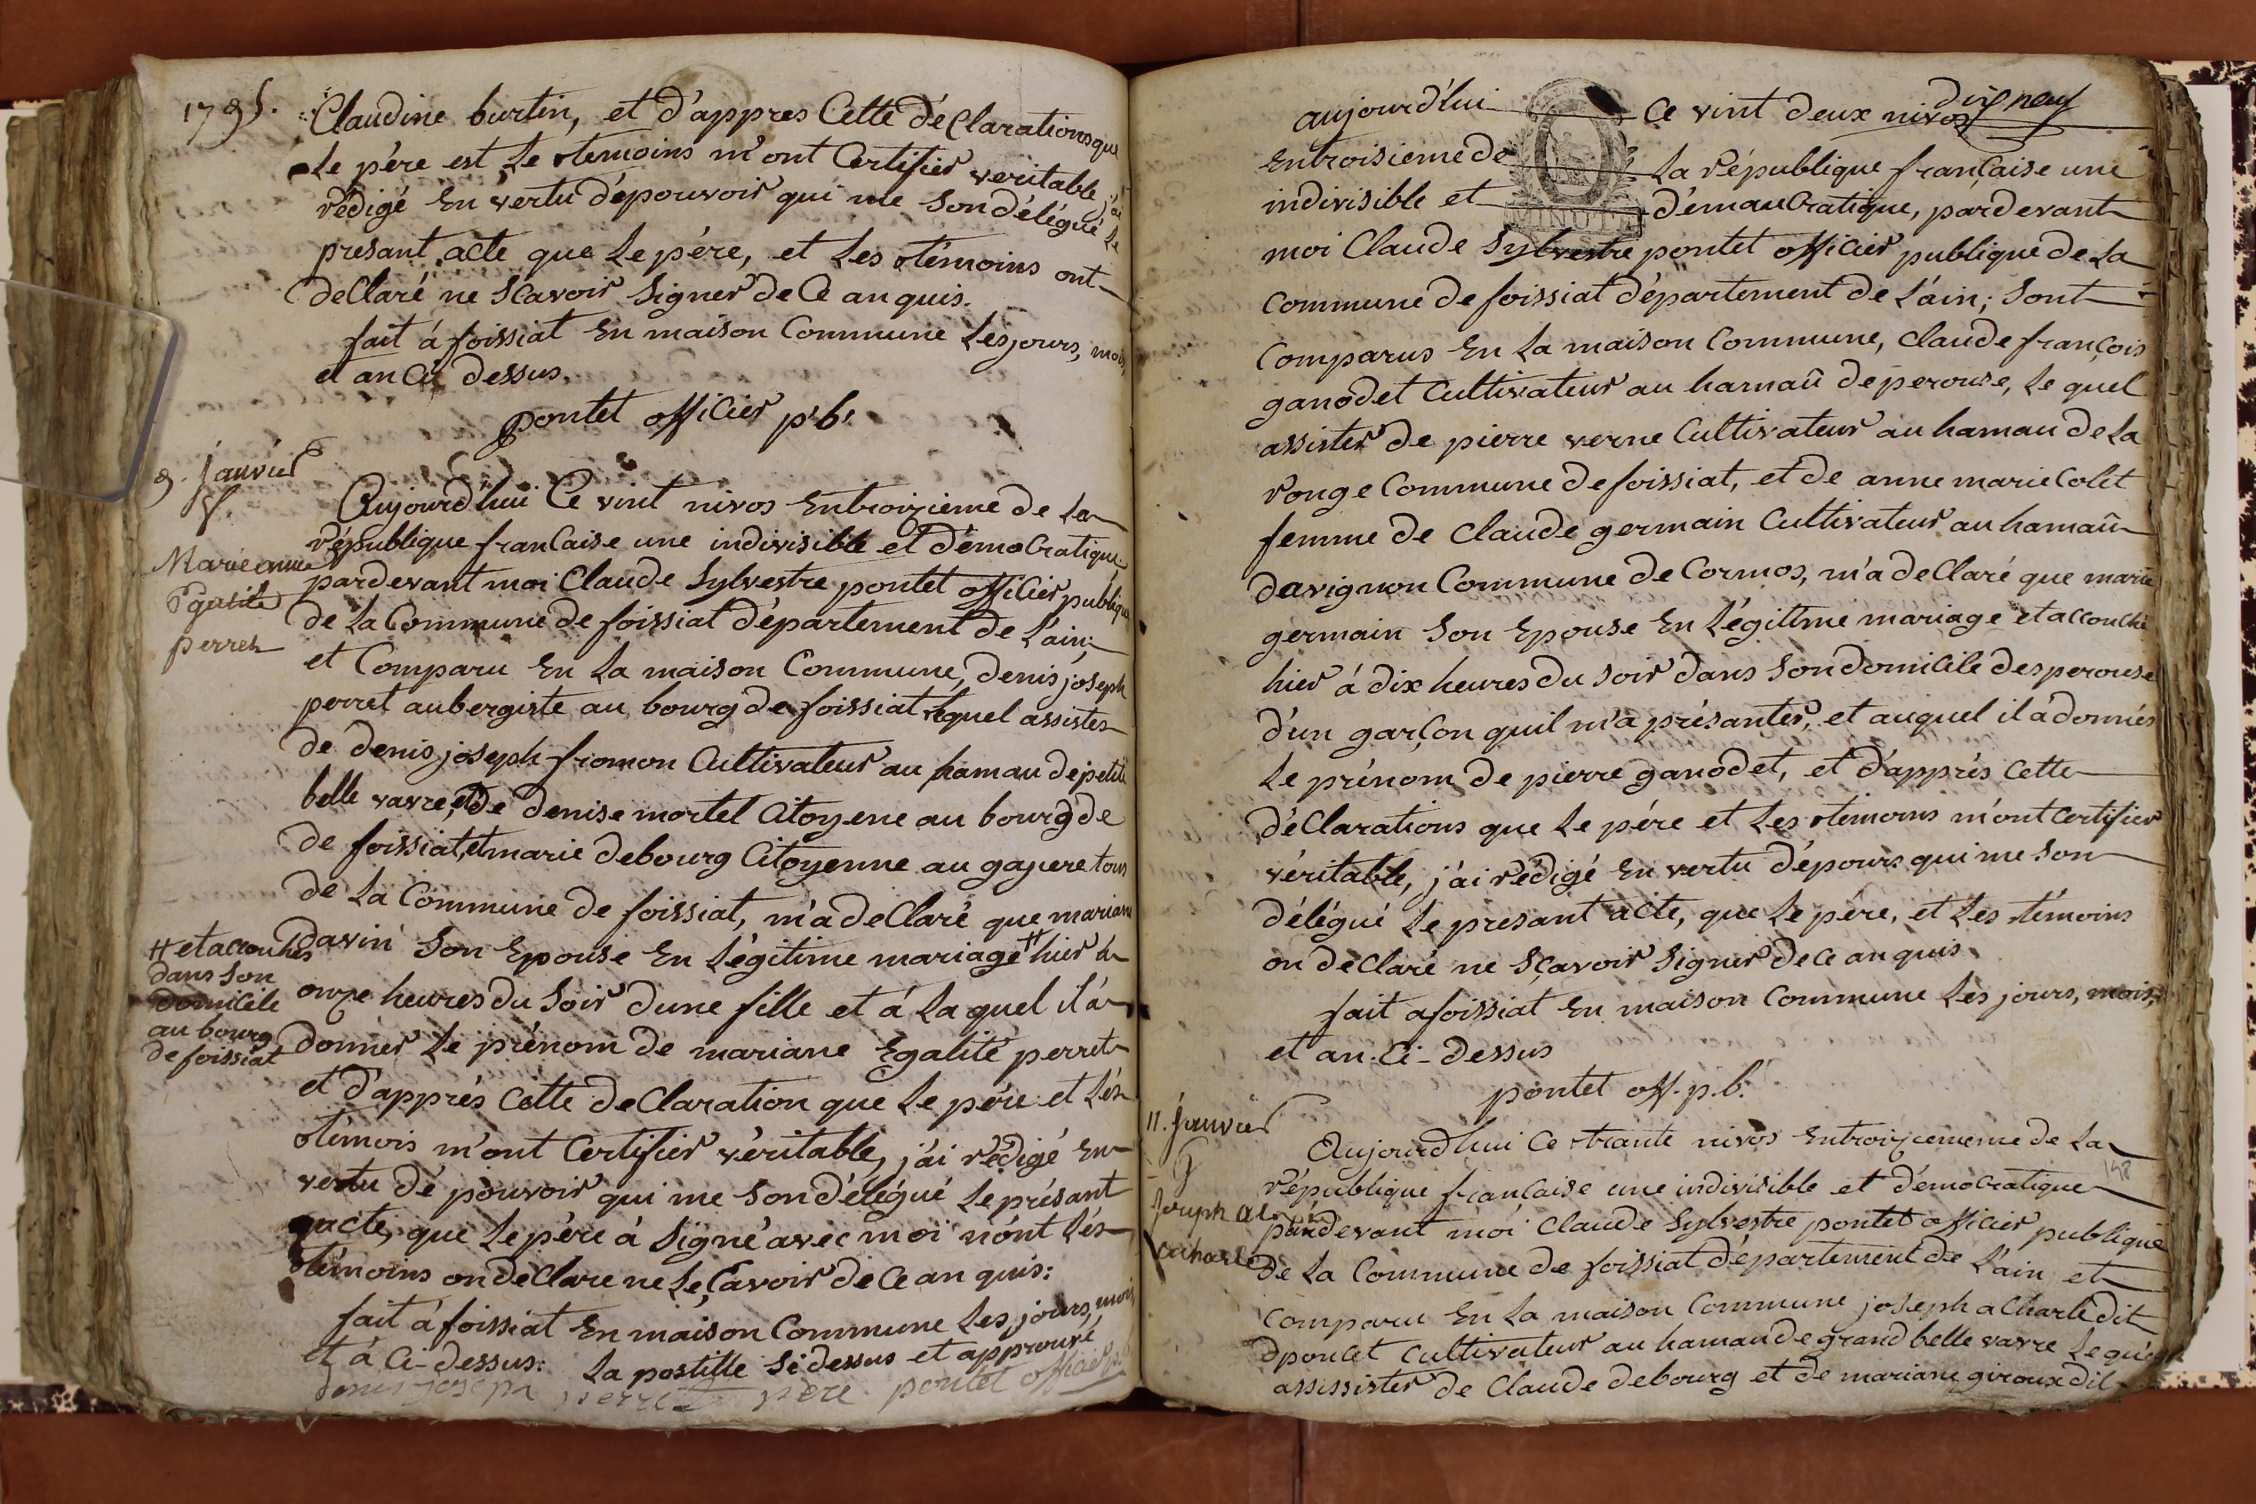 1795.
Claudine burtin, et d'appres Cette déClarations que
Le père est Le temoins m'ont Certifier veritable j'ai
rédigé En vertu dépouvoir qui me Son délégué Le
presant acte que Le père, et Les témoins ont
déClaré ne Sçavoir Signer de Ce an quis.
fait à foissiat En maison Commune Les jours, mois
et an Ci dessus.
pontet officier p.b.
9. janvier
Marieanne
Egalité
perret
Aujourd'hui Ce vint nivos Entroizieme de La
république francaise une indivisible et démoCratique
pardevant moi Claude Sylvestre pontet officier publique
de La Commune de foissiat département de L'ain;
et Comparu En La maison Commune, denis joseph
perret aubergiste au bourg de foissiat Lequel assister
de denis joseph fromon Cultivateur au hamau de petite
belle vavre, et de denise mortel Citoyene au bourg de
de foissiat, et marie debourg Citoyenne au gayere tous
de La Commune de foissiat, m'a deClaré que mariane
davin Son Epouse En Légitime mariage # hier à
# et accouchés
dans Son
domicile
au bourg
de foissiat
onze heures du Soir dune fille et à La quel il à
donner Le prénom de mariane Egalité perret
et d'apprés Cette deClaration que Le père et Lés
témois m'ont Certifier véritable, j'ai rédigé En
vertu dé pouvoir qui me Son délégué Le présant
acte, que Le père à Signé avec moi nont Lés
témoins on deClare ne Le Çavoir de Ce an quis:
fait à foissiat En maison Commune Les jours, mois
et à Ci-dessus: La postille Sidessus et approuvé
denis joseph perret père pontet officier p.b.
dix neuf
aujourd'hui Ce vint deux nivos
Entroisieme de La république française une
indivisible et démauCratique, pardevant
MINUTE
moi Claude Sylvestre pontet officier publique de La
Commune de foissiat département de L'ain; Sont
Comparus En La maison Commune, Claude françois
ganodet Cultivateur au hamaû de perouse, Le quel
assister de pierre verne Cultivateur au hamau de La
rouge Commune de foissiat, et de anne marie Colet
femme de Claude germain Cultivateur au hamaû
davignon Commune de Cormos, m'a deClaré que marie
germain Son Epouse En Légitime mariage et accouché
hier à dix heures du Soir dans Son domicile desperouse
d'un garçon quil m'a présanter, et auquel il à donnés
Le prénom de pierre ganodet, et d'apprés Cette
déClarations que Le père et Les témoins m'ont Certifier
véritable, j'ai rédigé En vertu dépours qui me Son
délégué Le presant acte, que Le père, et Les témoins
on déClaré ne Sçavoir Signer de Ce an quis
fait afoissiat En maison Commune Les jours, mois,
et an. Ci-dessus
pontet off. p.b.
11. janvier
Joseph
acharle
Aujourd'hui Ce trante nivos Entroizcememe de La
148
république francaise une indivisible et démoCratique
pardevant moi Claude Sylvestre pontet officier publique
de La Commune de foissiat département de L'ain et
Comparu En La maison Commune joseph aCharle dit
dponcet Cultivateur au hamau de grand belle vavre Le quel
assissister de Claude debourg et de mariane giroux dit